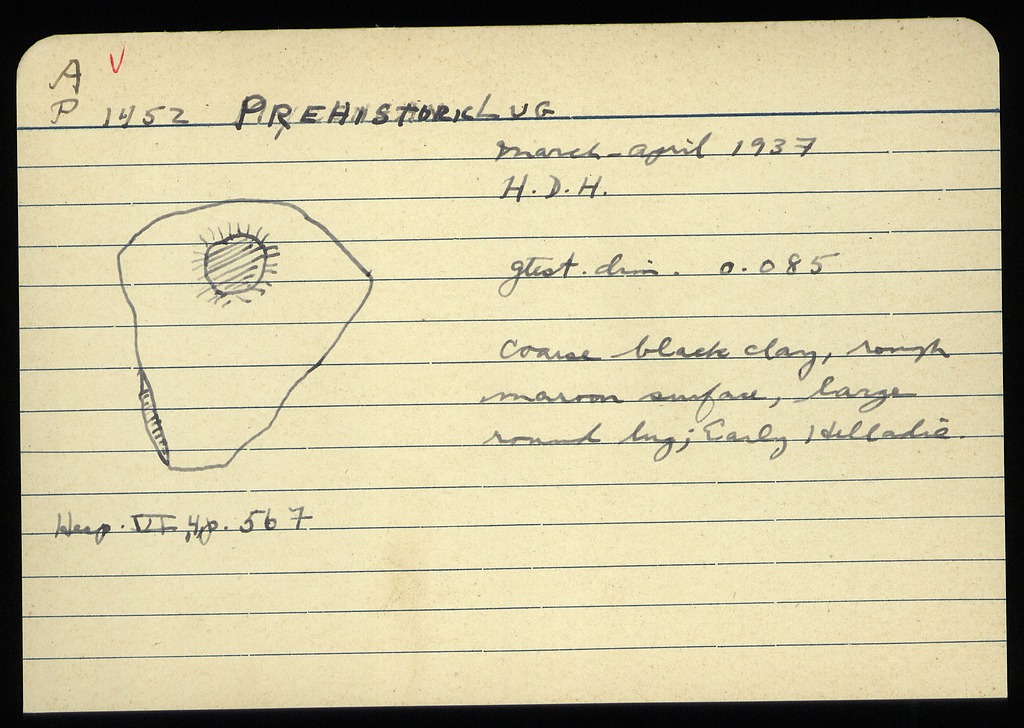 A V
P 1452 PREHISTORIC LUG
March-April 1937
H.D.H.
gtest. dim. 0.085
Coarse black clay, rough
maroon surface, large
round lug; Early Helladic.
Hesp. VI, 4, p. 567